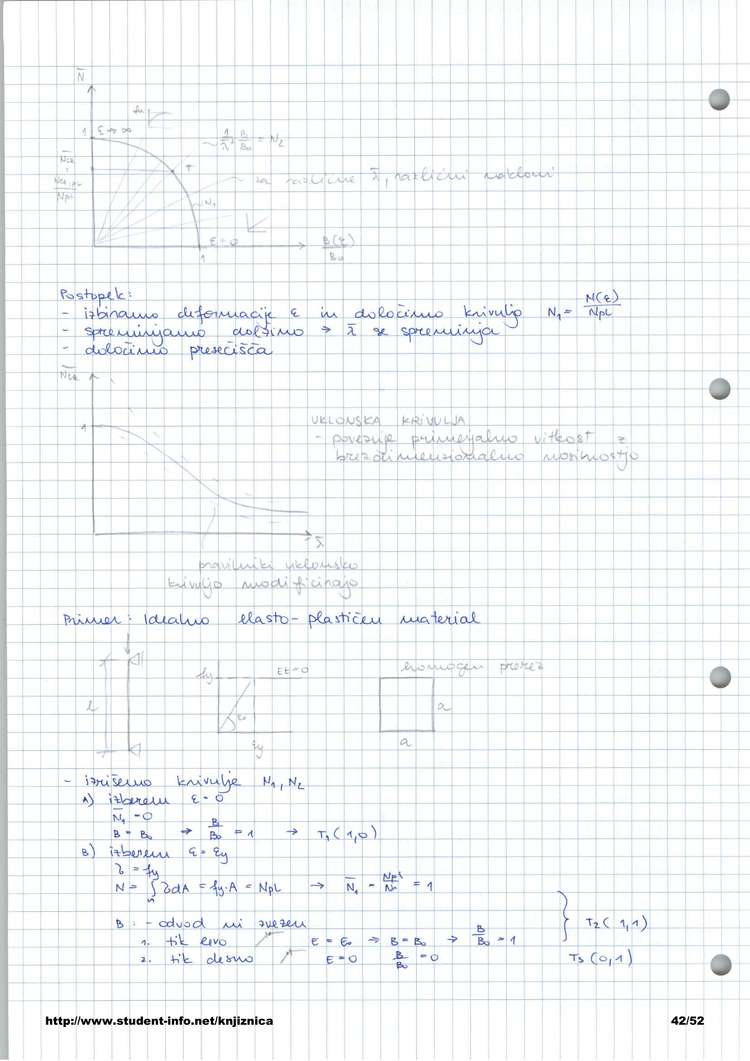 N̄
fu
1 ε→∞
1/λ̄² B/B₀ = N₂
N̄cr
T
za različne λ̄, različni nakloni
Npl
N₁
ε=0
1
B(ε)/B₀
Postopek:
- izbiramo deformacije ε in določimo krivuljo N₁ = N(ε)/Npl
- spreminjamo dolžino → λ̄ se spreminja
- določimo presečišča
N̄cr
1
UKLONSKA KRIVULJA
- povezuje primerjalno vitkost z
brezdimenzionalno nosilnostjo
λ̄
pravilniki uklonsko
krivuljo modificirajo
Primer: Idealno elasto-plastičen material
fy Et=0 homogen prerez
l E₀ a
εy a
- izrišemo krivulje N₁, N₂
A) izberem ε=0
N̄₁=0
B = B₀ → B/B₀ = 1 → T₁(1,0)
B) izberem ε=εy
σ = fy
N = ∫σdA = fy·A = Npl → N̄₁ = Npl/Npl = 1
B: - odvod ni zvezen
1. tik levo E = E₀ → B = B₀ → B/B₀ = 1 T₂(1,1)
2. tik desno E=0 B/B₀ = 0 T₃(0,1)
http://www.student-info.net/knjiznica 42/52